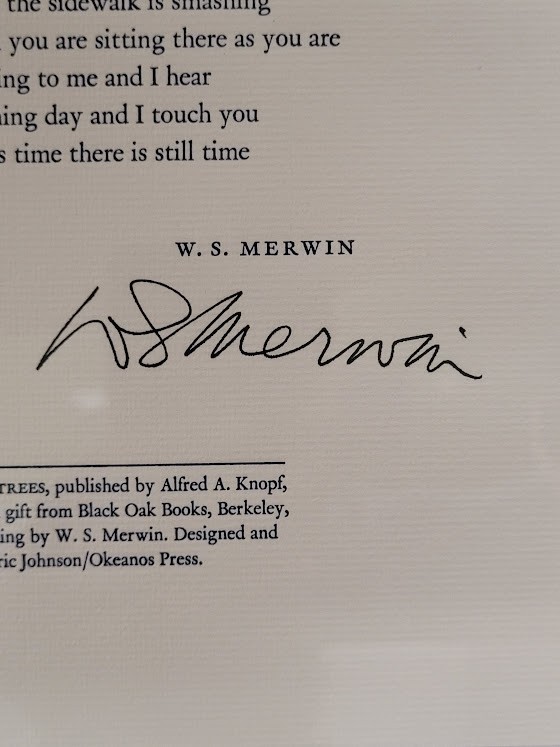 the sidewalk is smashing
you are sitting there as you are
ing to me and I hear
ing day and I touch you
s time there is still time
W. S. MERWIN
WS Merwin
TREES, published by Alfred A. Knopf,
gift from Black Oak Books, Berkeley,
ing by W. S. Merwin. Designed and
ric Johnson/Okeanos Press.